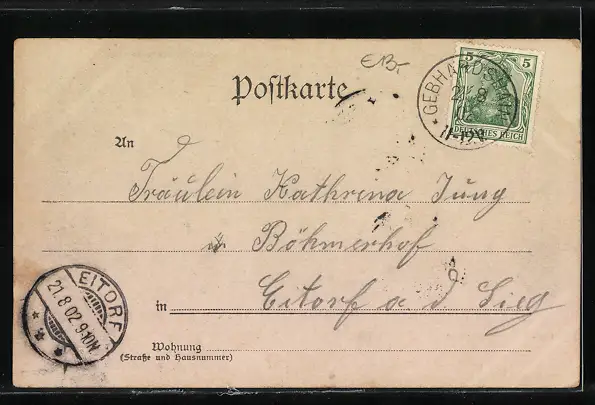 €13,-
Postkarte
GEBHARDSHAIN
21 8
02
11-12V
5 5
DEUTSCHES REICH
An
Fräulein Kathrina Jung
Böhmerhof
in Eitorf a d Sieg
EITORF
21.8.02.9-10N.
Wohnung
(Straße und Hausnummer)